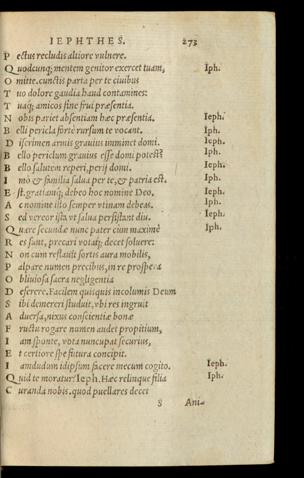 IEPHTHES. 273
P ectus recludis altiore vulnere.
Q uodcunq; mentem genitor exercet tuam, Iph.
O mitte. cunctis parta per te ciuibus
T uo dolore gaudia haud contamines:
T uaq; amicos sine frui præsentia.
N obis pariet absentiam hæc præsentia. Ieph.
B elli pericla fortè rursum te vocant. Iph.
D iscrimen armis grauius imminet domi. Ieph.
B ello periclum grauius esse domi potest? Iph.
B ello salutem reperi, perij domi. Ieph.
I mò & similia salua per te, & patria est. Iph.
E st. gratiamq; debeo hoc nomine Deo. Ieph.
A c nomine isto semper vtinam debeas. Iph.
S ed vereor ista vt salua persistant diu. Ieph.
Q uære secundæ nunc pater cum maximè Iph.
R es sunt, precari votaq; decet soluere:
N on cum reflauit sortis aura mobilis,
P alpare numen precibus, in re prospera
O bliuiosa sacra negligentia
D eserere. Facilem quisquis incolumis Deum
S ibi demereri studuit, vbi res ingruit
A duersa, nixus conscientiæ bonæ
F ructu rogare numen audet propitium,
I am sponte, vota nuncupat securius,
E t certiore spe futura concipit.
I amdudum idipsum facere mecum cogito. Ieph.
Q uid te moratur? Ieph. Hæc relinque filia Iph.
C uranda nobis. quod puellares decet
S Ani-